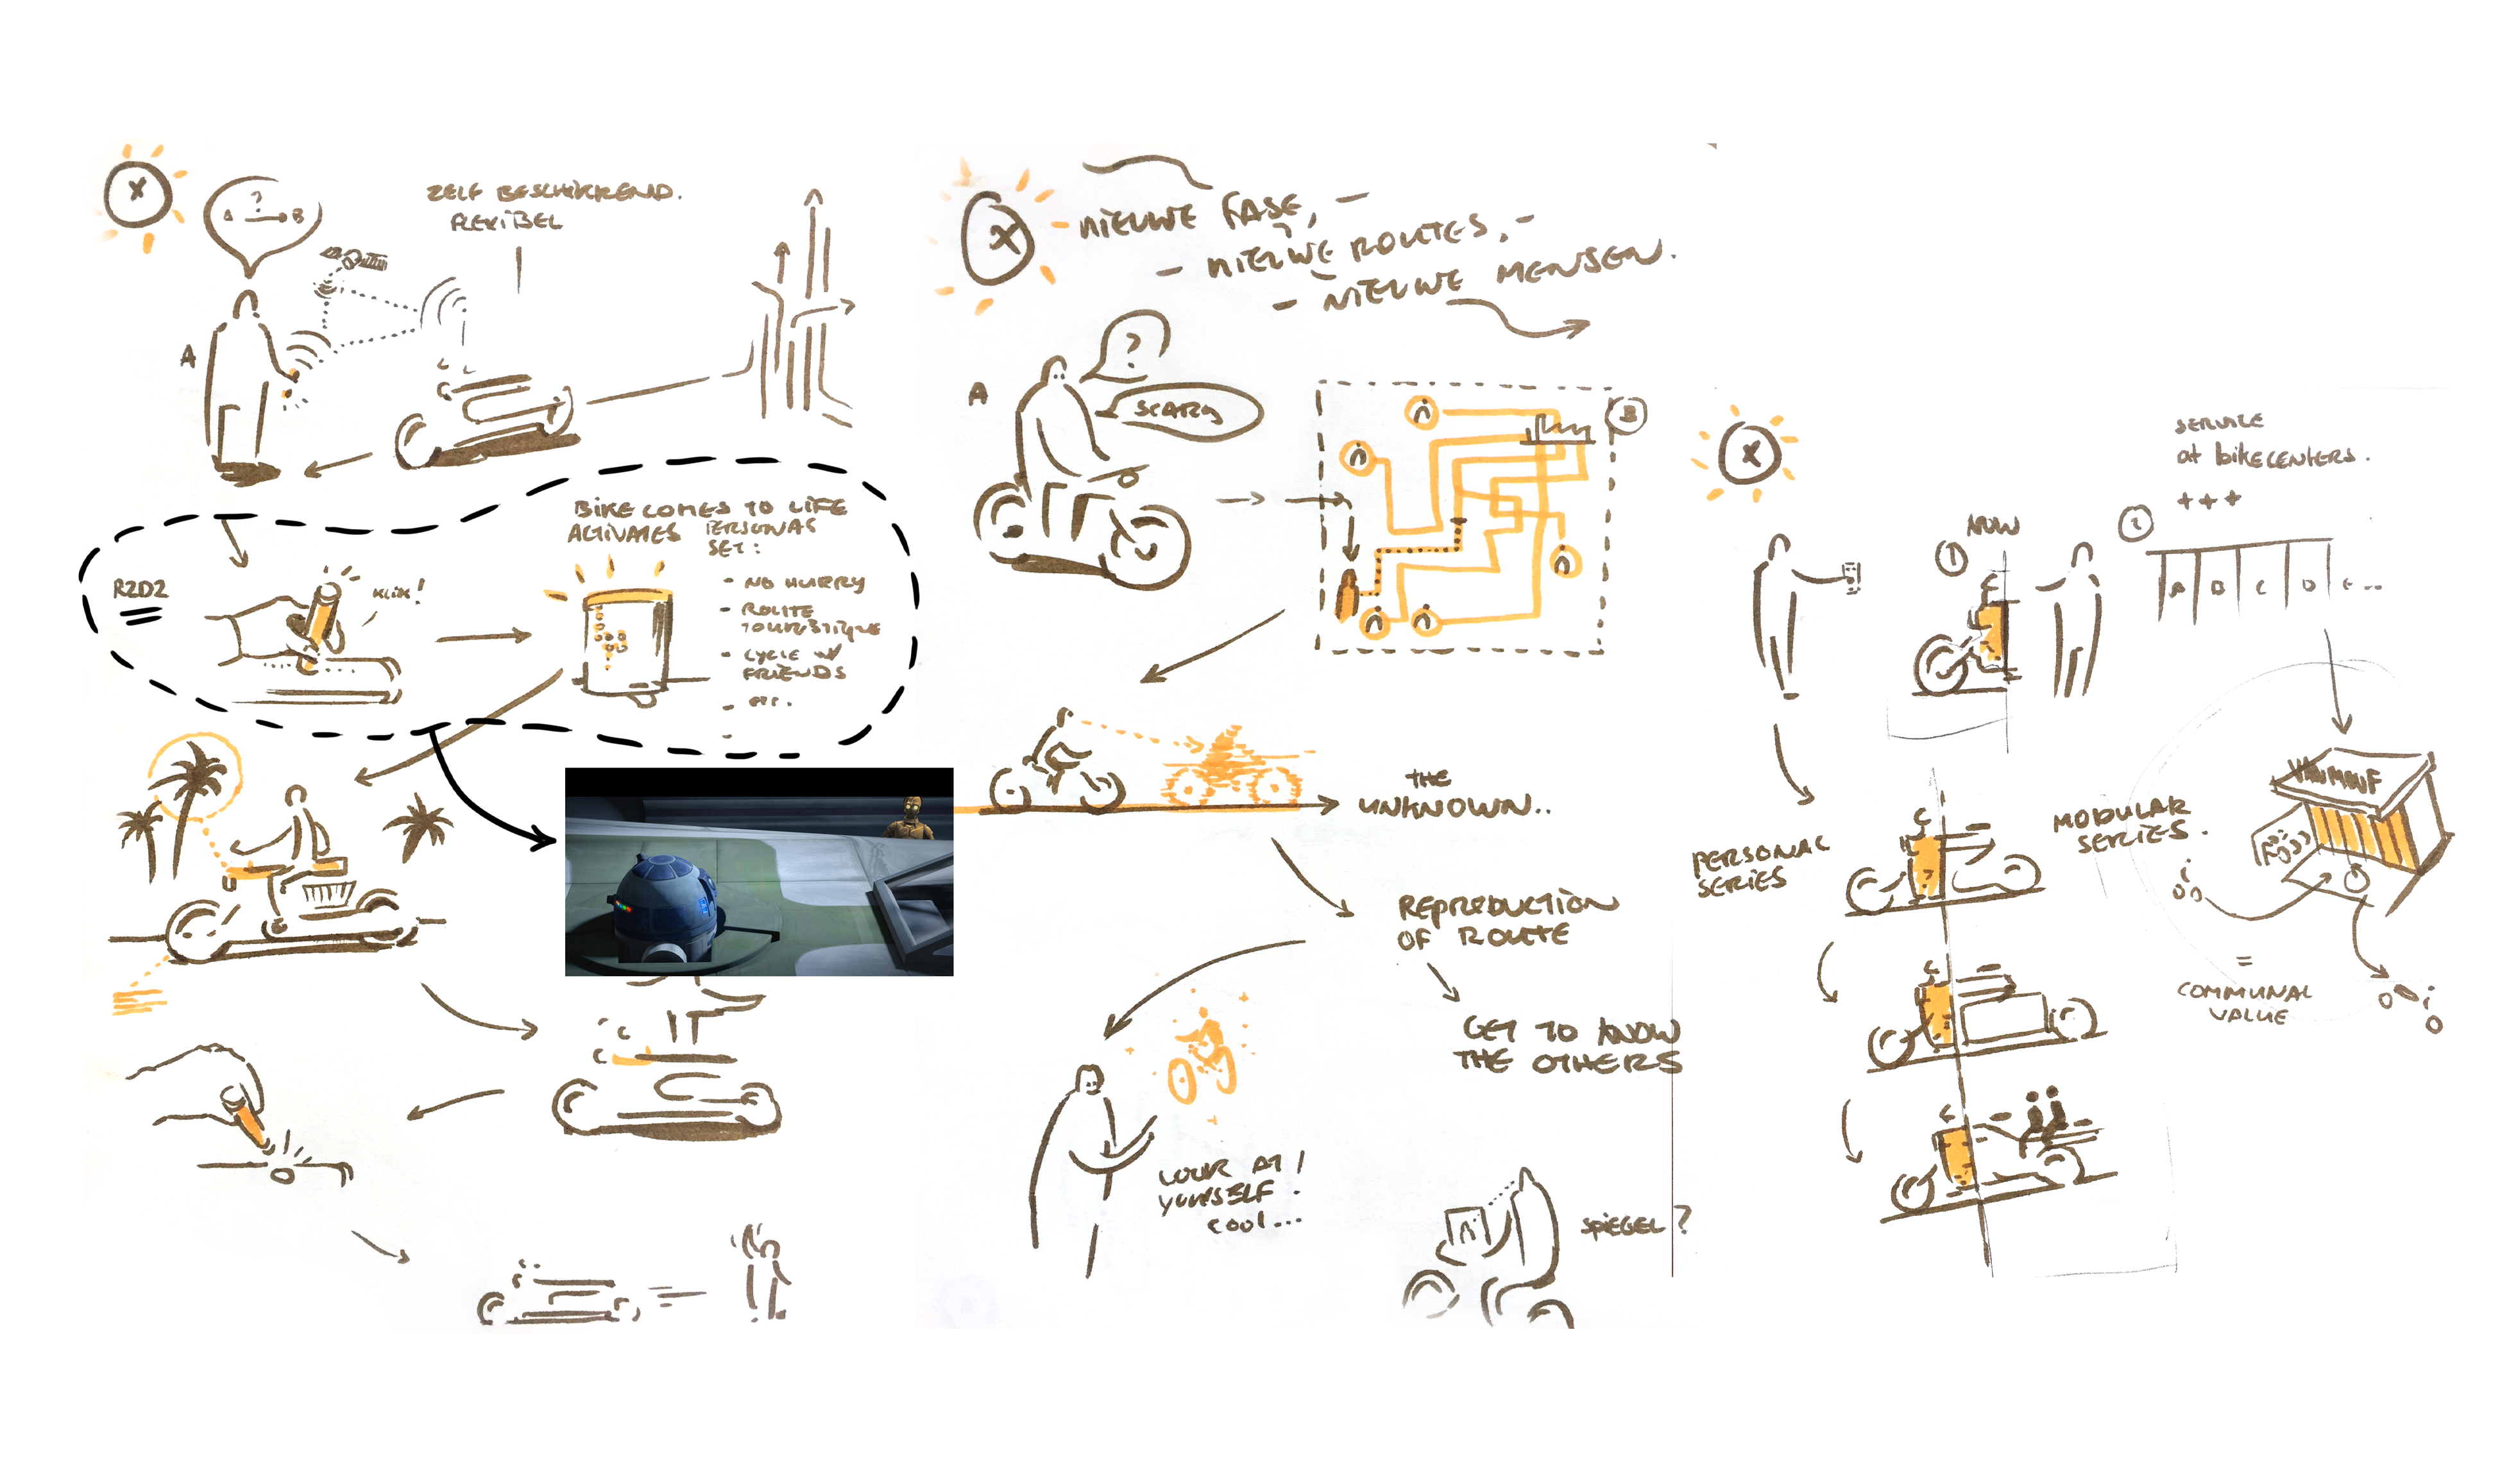 X
?
A B
ZELF BESCHIKKEND.
FLEXIBEL
A
BIKE COMES TO LIFE
ACTIVATES PERSONAS
SET:
R2D2
KLIK!
- NO HURRY
- ROUTE
TOURISTIQUE
- CYCLE W/
FRIENDS
- etc.
-
X
NIEUWE FASE, -
- NIEUWE ROUTES, -
- NIEUWE MENSEN.
?
A
SCARY
B
THE
UNKNOWN..
REPRODUCTION
OF ROUTE
GET TO KNOW
THE OTHERS
LOOK AT
YOURSELF.
COOL...
SPIEGEL?
X
SERVICE
at bikecenters.
+++
NOW
1
2
A B C D E...
PERSONAL
SERIES
MODULAR
SERIES.
VANMOOF
=
COMMUNAL
VALUE